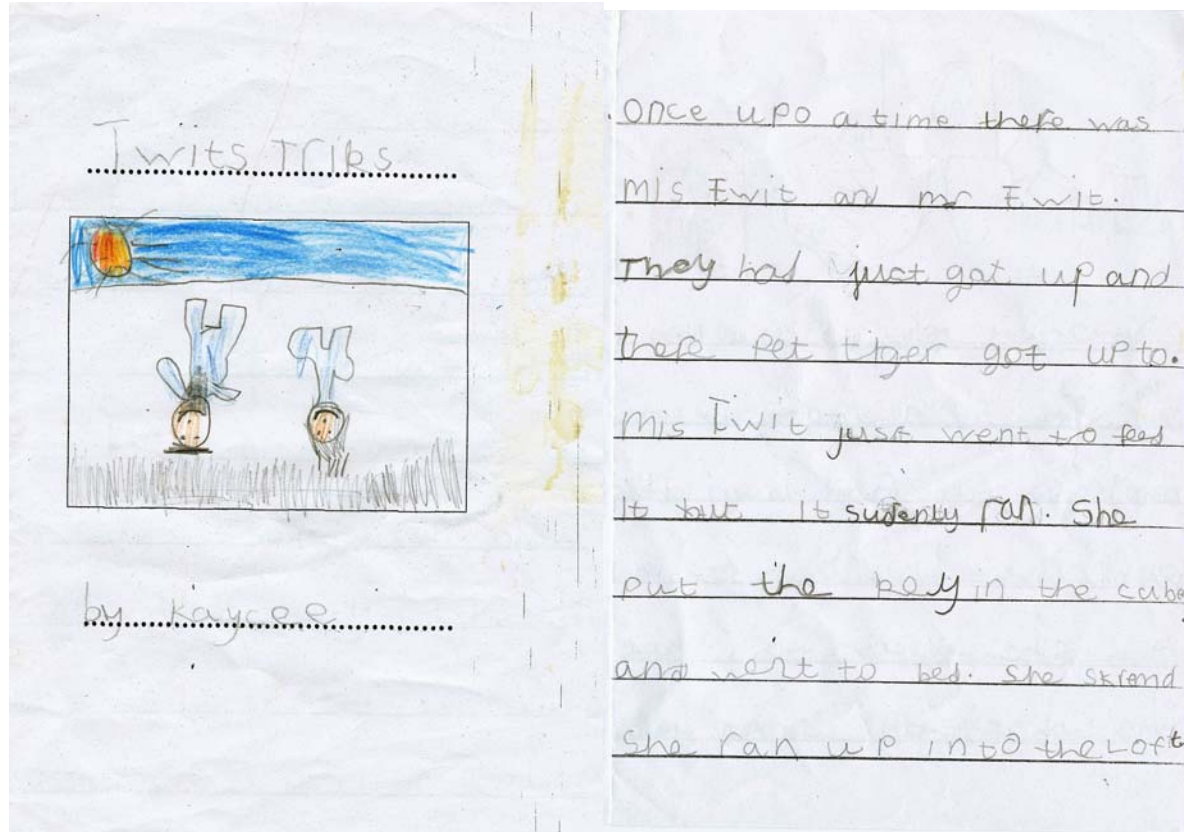 Twits Triks
by Kaycee
Once upo a time there was
mis Twit and mr Twit.
They had just got up and
there pet tiger got up to.
mis Twit just went to feed
it but it sudenty ran. She
put the key in the cube
and went to bed. She skremd
She ran up into the Loft